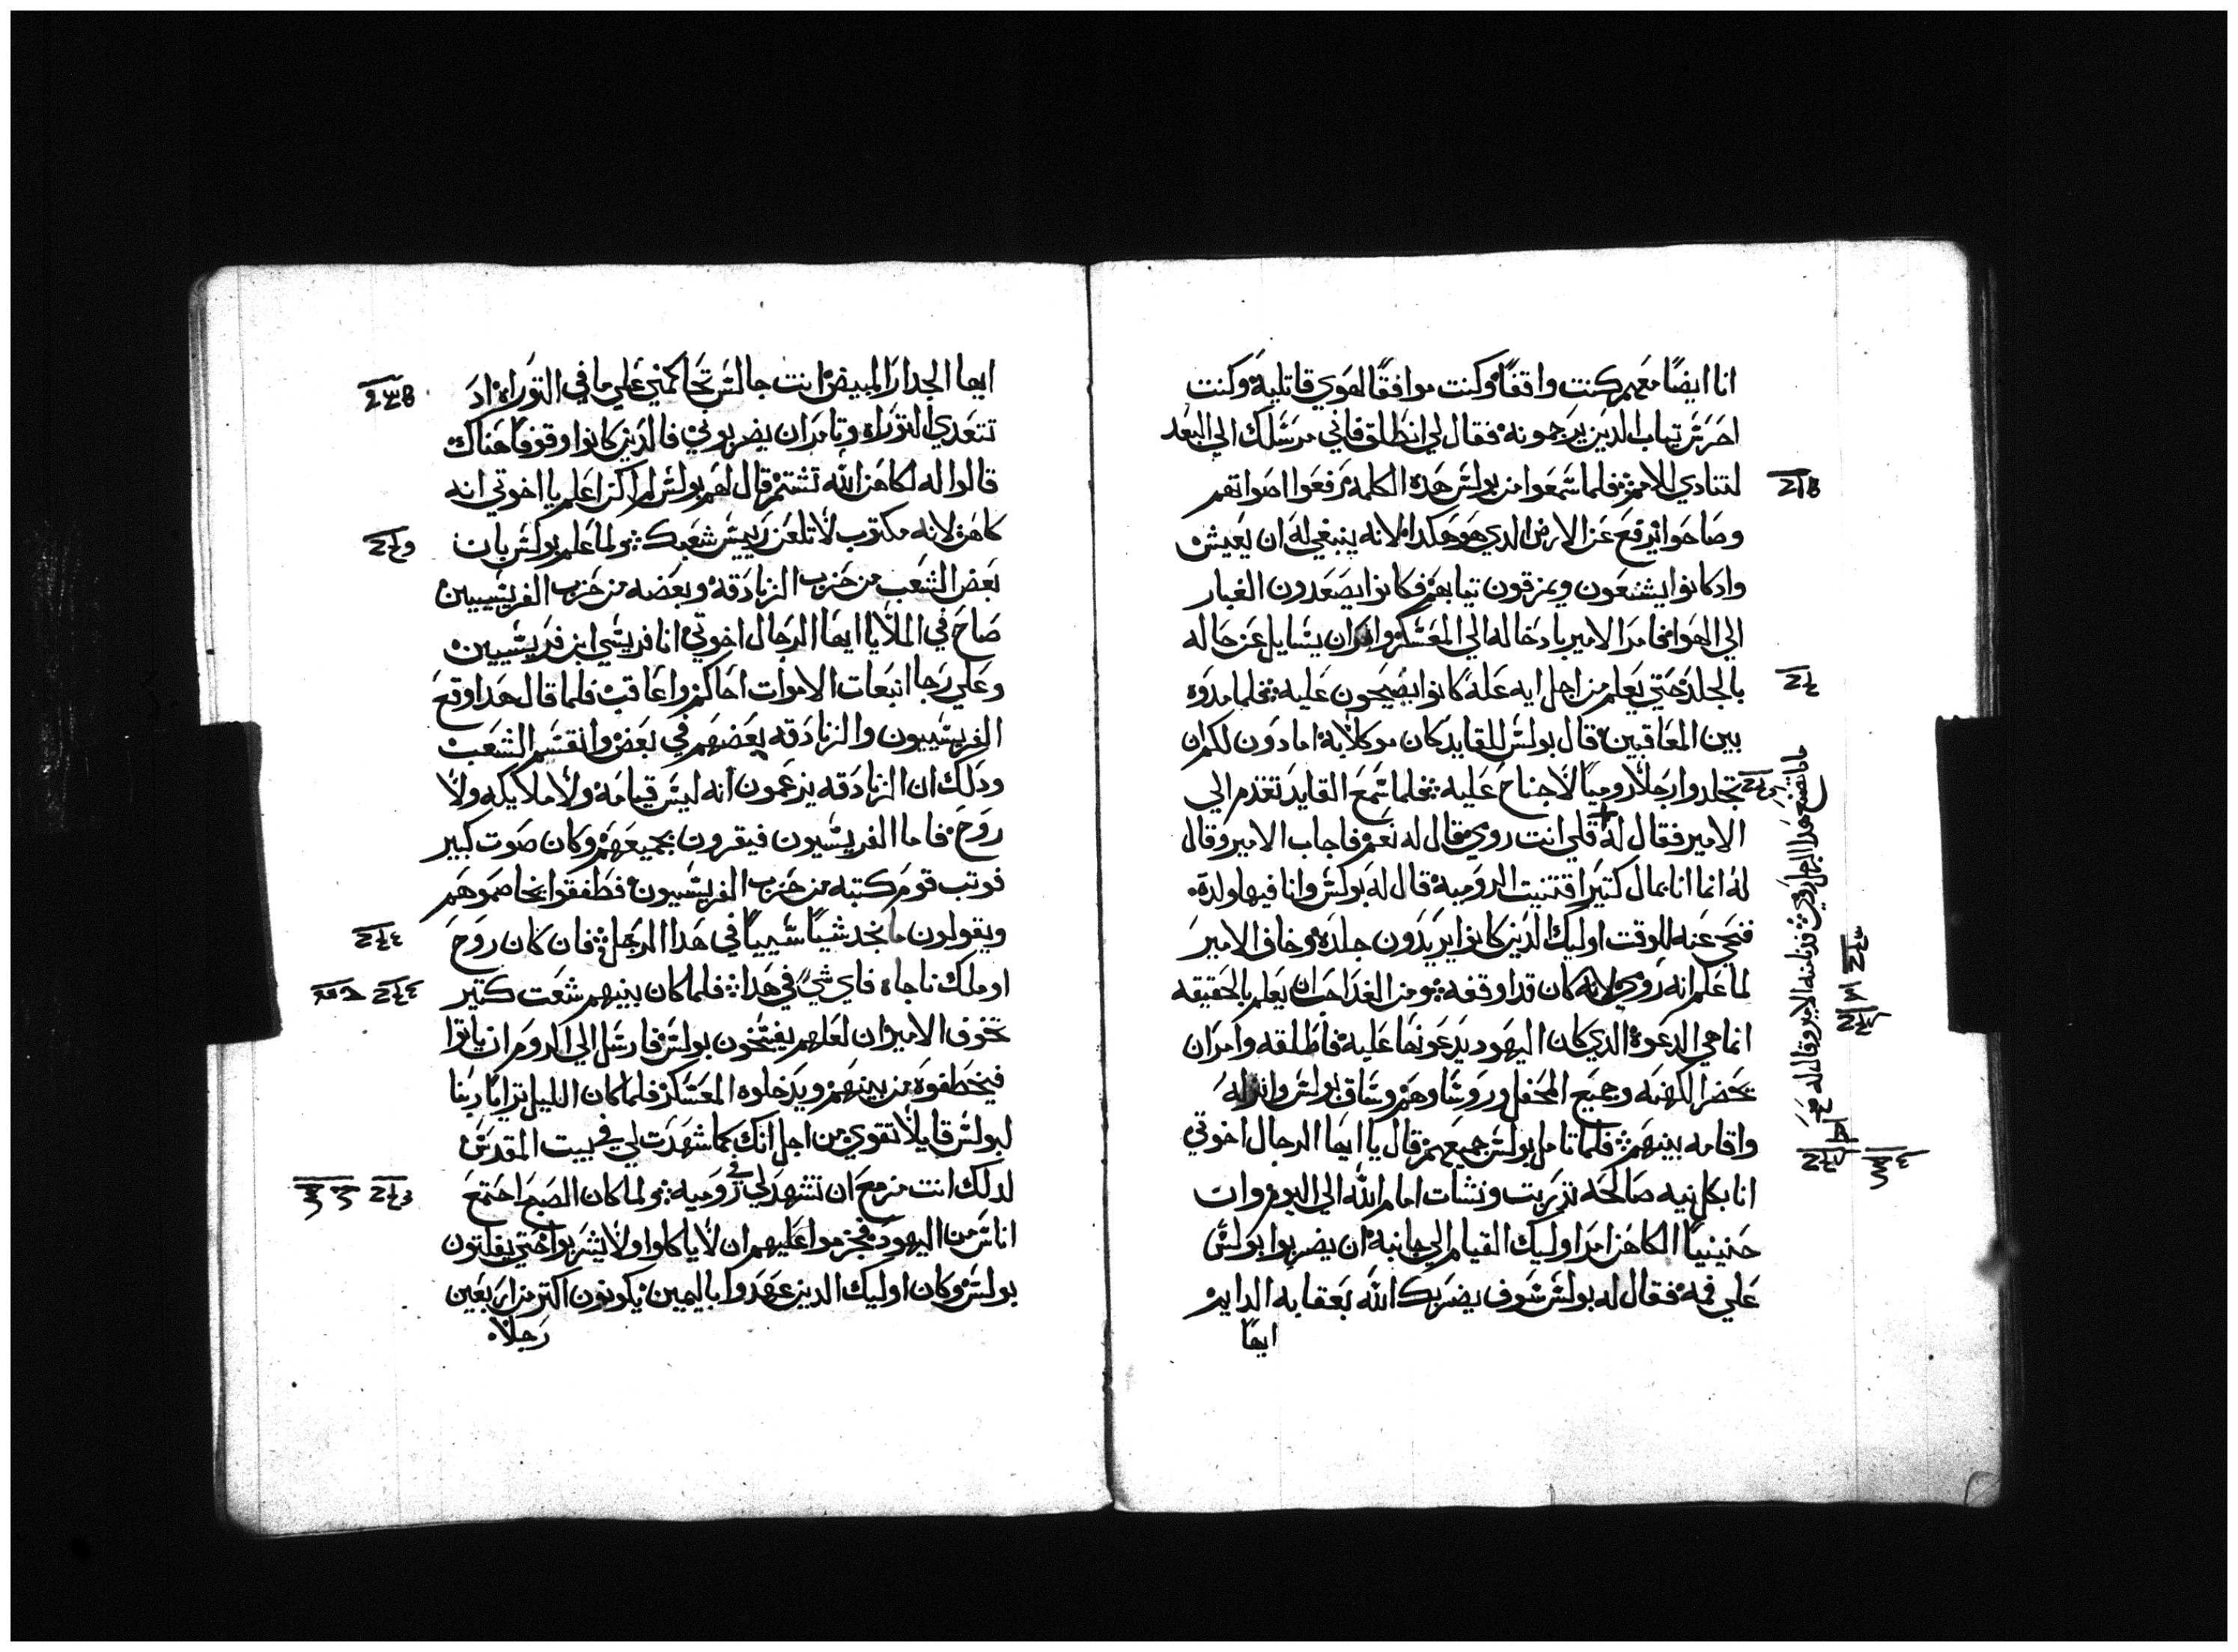 انا ايضًا معهم كنت واقفًا وكنت موافقًا لهوي قاتليه وكنت
احرس تياب الدين يرجمونه فقال لي انطلق فاني مرسلك الي البعد
لتنادي للامم فلما سمعوا من بولس هده الكلمه رفعوا اصواتهم
وصاحوا يرفع عن الارض الدي هو هكدا لانه ينبغي له ان يعيش
واد كانوا يشنعون ويمزقون تيابهم فكانوا يصعدون الغبار
الي الهوا فامر الامير بادخاله الي المعسكر وامر ان يسايل عن حاله
بالجلد حتي يعلم من اجل ايه عله كانوا يصيحون عليه فلما مدوه
بين المعاقبين قال بولس للقايد كان موكلا به امادون لكم ان
تجلدوا رجلا روميا لا جناح عليه فلما سمع القايد تقدم الي
الامير فقال له قلي انت رومي قال له نعم فاجاب الامير وقال
له انما انا بمال كتير اقتنيت الروميه قال له بولس وانا فيها ولدت
فنحي عنه للوقت اوليك الدين كانوا يريدون جلده وخاف الامير
لما علم انه رومي لانه كان قد اوقفه ومن الغد احب ان يعلم بالحقيقه
انما هي الدعوه الدي كان اليهود يدعونها عليه فاطلقه وامر ان
يحضر الكهنه وجميع المحفل وروساوهم وساق بولس وانزله
واقامه بينهم فلما تامل بولس جميعهم قال يا ايها الرجال اخوتي
انا بكل نيه صالحه تزربت ونشات امام الله الي اليوم وان
حنينيا الكاهن امر اوليك القيام الي جانبه ان يضربوا بولس
علي فمه فقال له بولس سوف يضربك الله بعقابه الدايم
ايها
مادا تصنع هدا الرجل رومي فدنا منه الامير وقال له
ايها الجدار المبيض انت جالس تحاكمني علي ما في التوراه اد
تتعدي التوراه وتامر ان يضربوني فالدين كانوا وقوفا هناك
قالوا له لكاهن الله تشتم قال لهم بولس لم اكن اعلم يا اخوتي انه
كاهن لانه مكتوب لا تلعن رييس شعبك ولما علم بولس بان
بعض الشعب من حزب الزنادقه وبعضه من حزب الفريسيين
صاح في الملا يا ايها الرجال اخوتي انا فريسي ابن فريسيين
وعلي رجا انبعات الاموات احاكم واعاقب فلما قال هدا وقع
الفريسيون والزنادقه بعضهم في بعض وانقسم الشعب
ودلك ان الزنادقه يزعمون انه ليس قيامه ولا ملايكه ولا
روح فاما الفريسيون فيقرون بجميعهم وكان صوت كبير
فوتب قوم كتبه من حزب الفريسيون فطفقوا يخاصموهم
ويقولون ما نجد شيًا سييًا في هدا الرجل فان كان روح
او ملك ناجاه فاي شي في هدا فلما كان بينهم شعت كتير
تخوف الامير ان لعلهم يفتخون بولس فارسل الي الروم ان ياتوا
فيخطفوه من بينهم ويدخلوه المعسكر فلما كان الليل ترايا ربنا
لبولس قايلا تقوي من اجل انك كما شهدت لي في بيت المقدس
لدلك انت مزمع ان تشهد لي في روميه ولما كان الصبح اجتمع
اناس من اليهود فجزموا عليهم ان لا ياكلوا ولا يشربوا حتي يقتلون
بولس وكان اوليك الدين عهدوا باليمين يكونون اكتر من اربعين
رجلا